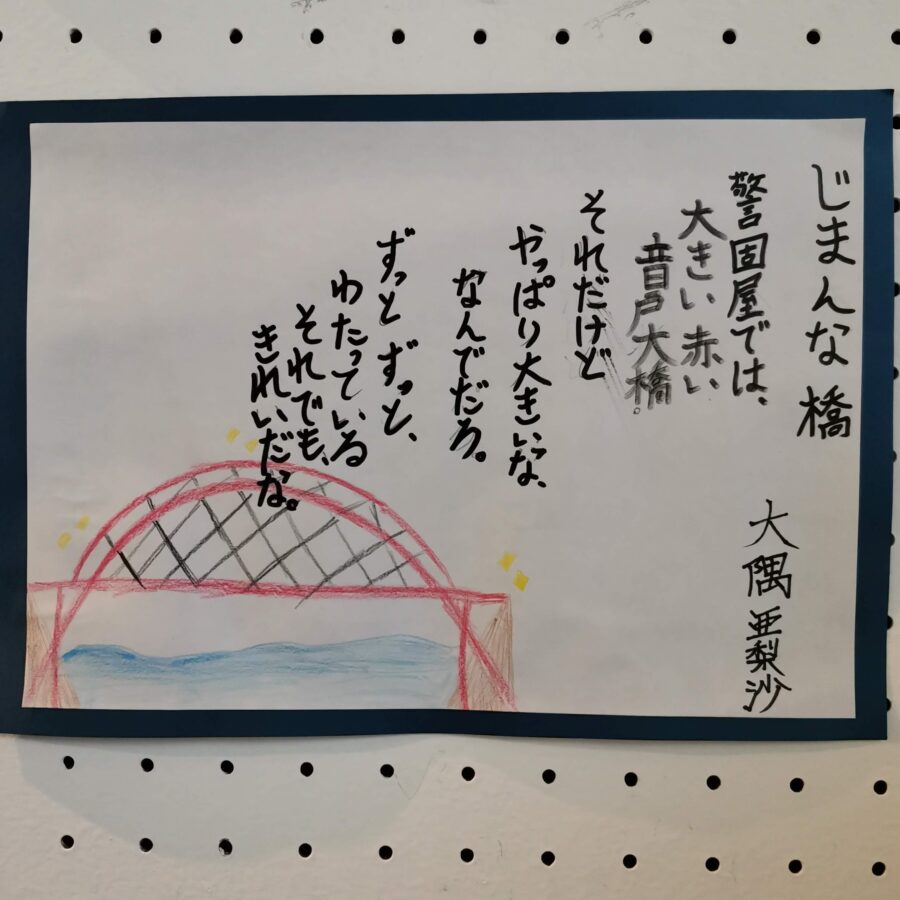 じまんな橋
大隅亜梨沙
警固屋では、
大きい赤い
音戸大橋。
それだけど
やっぱり大きいな、
なんでだろ。
ずっとずっと、
わたっている
それでも、
きれいだな。